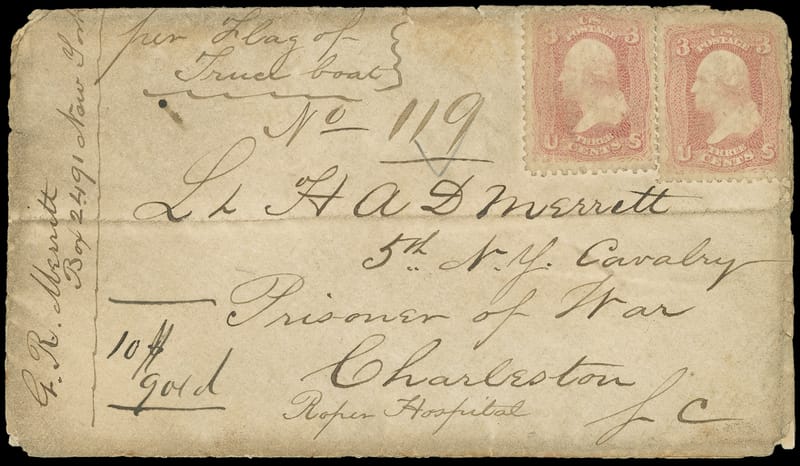 per Flag of
Truce boat
No 119
Lt H A D Merritt
5th N.Y. Cavalry
Prisoner of War
Charleston
Roper Hospital
S C
10 $
gold
G. R. Merritt
Box 2491 New York
3 U.S. POSTAGE 3
THREE
U CENTS S
3 U.S. POSTAGE 3
THREE
U CENTS S